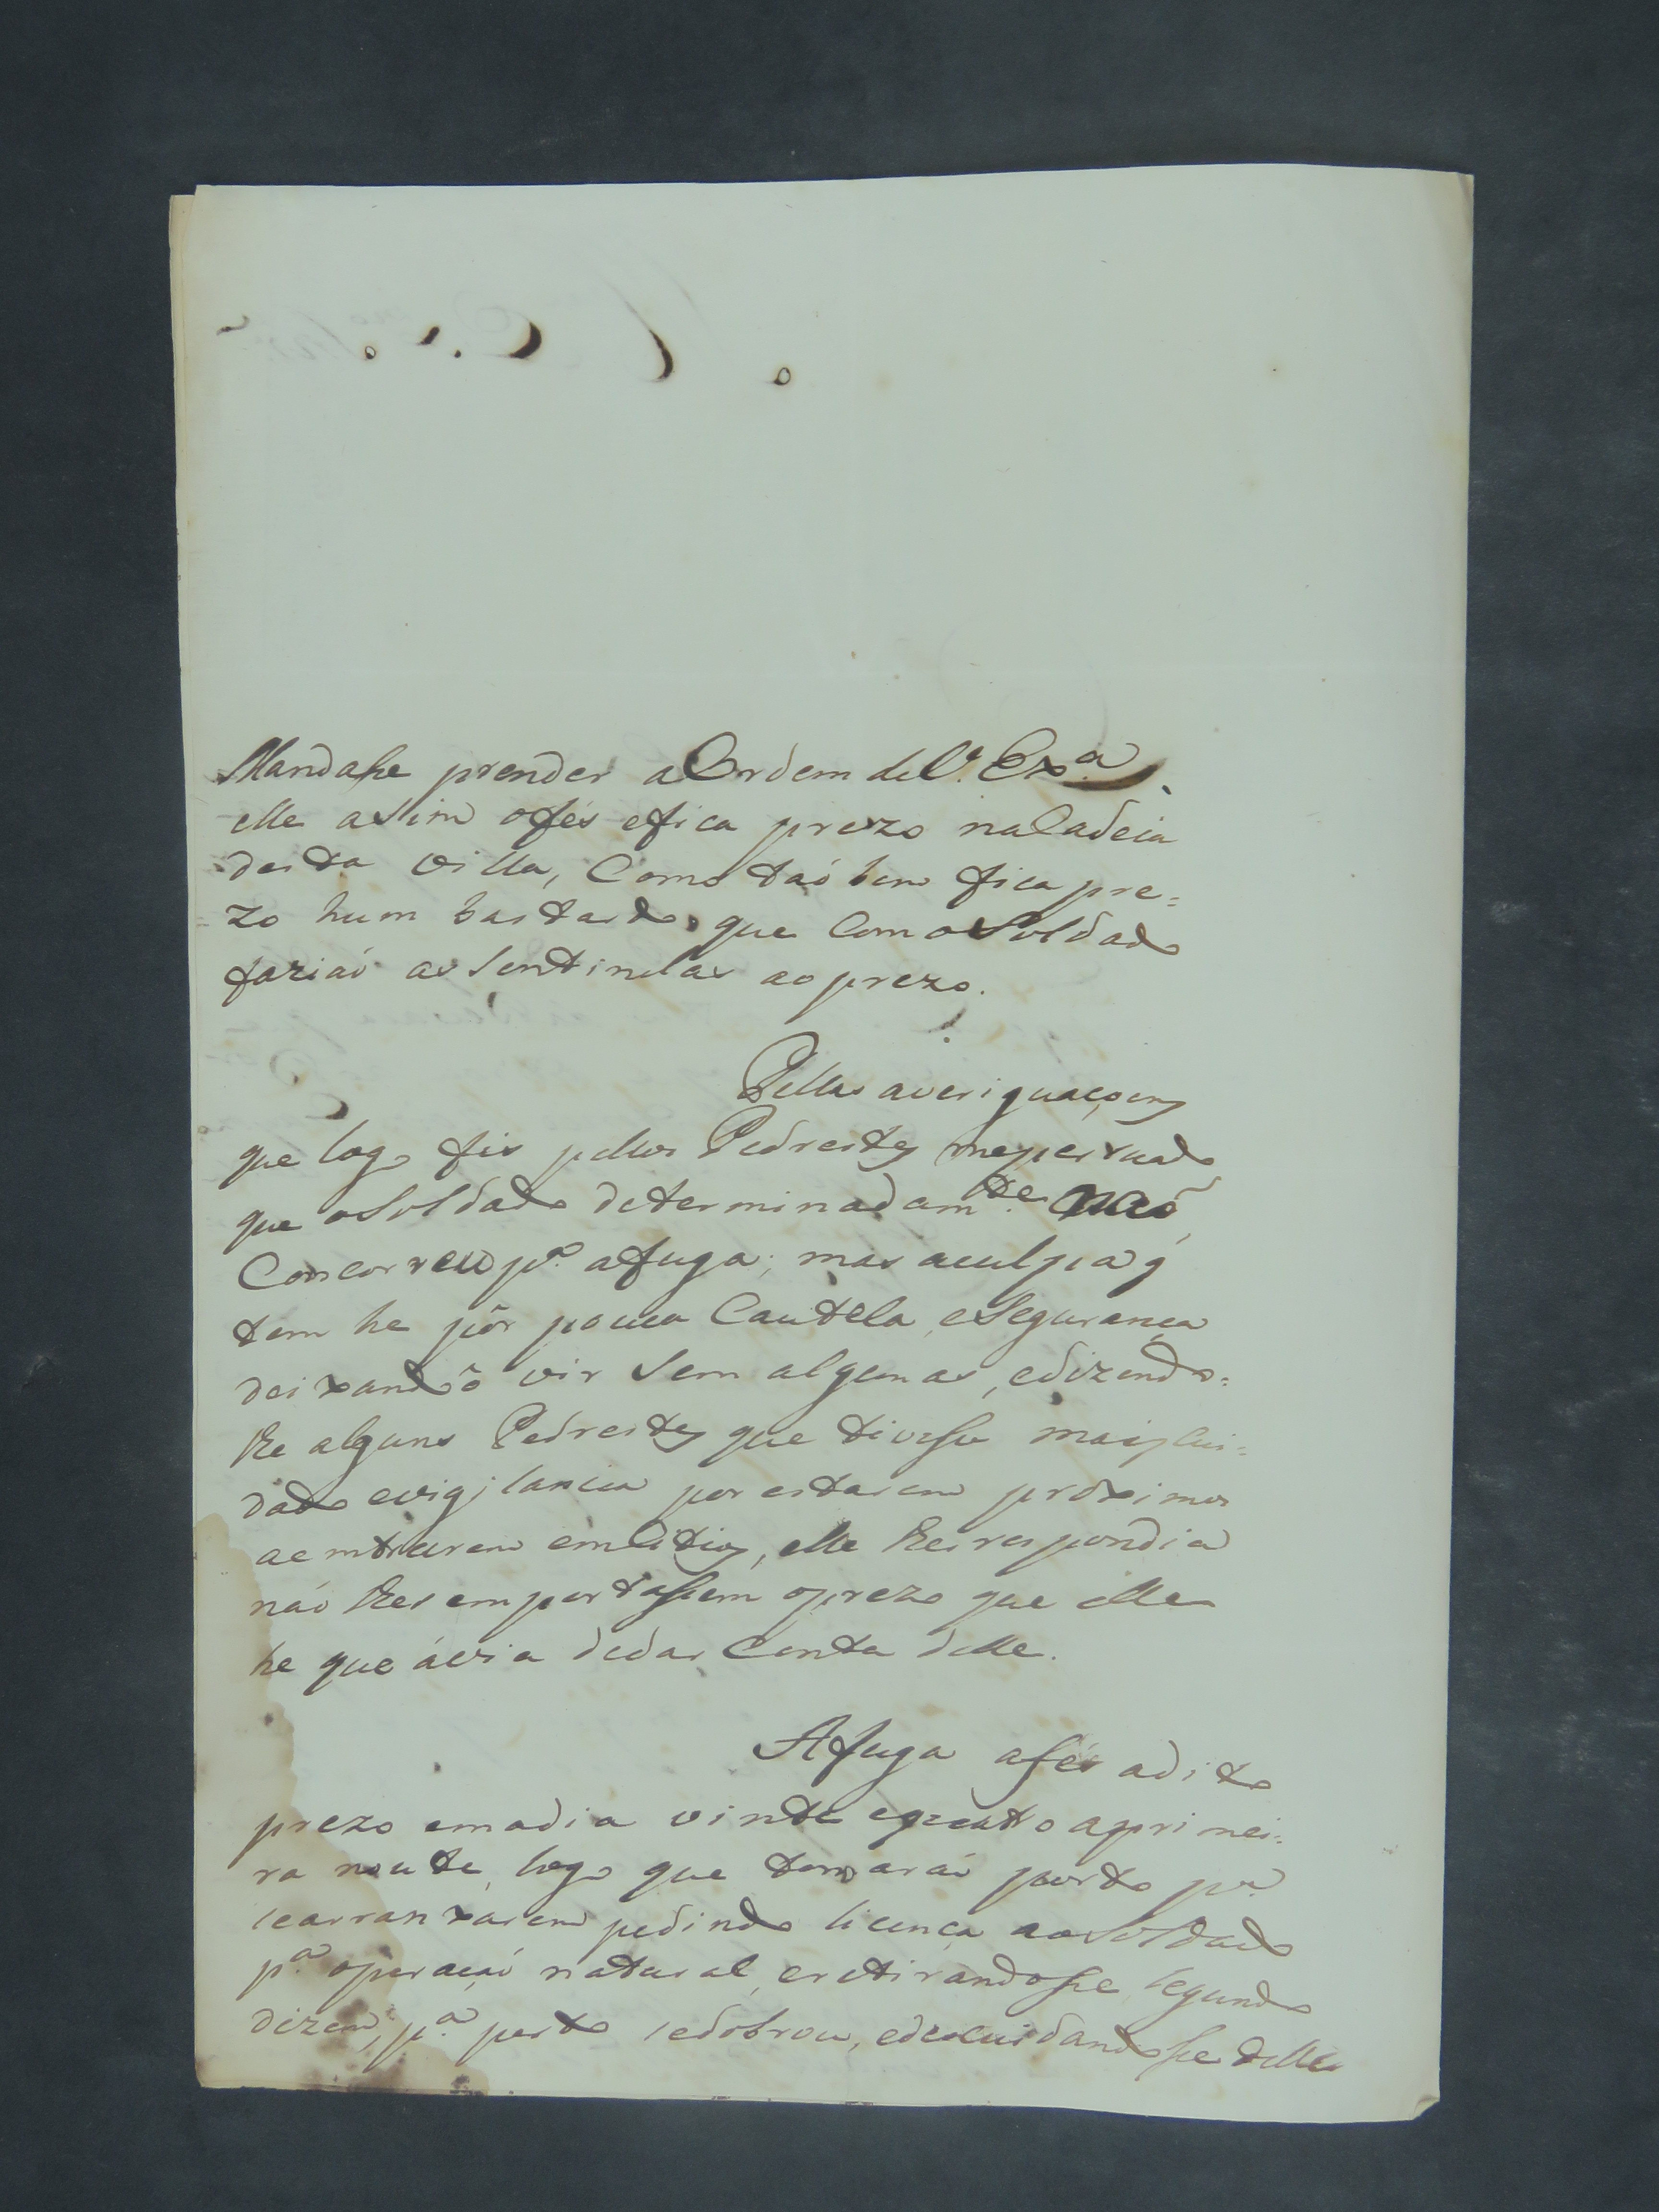 Mandase prender a Ordem de V. Exª.
elle asim ofés efica prezo naCadeia
desta Villa, Como taó bem fica pre=
zo hum bastardo, que Com oSoldado
faziaó as Sentinelas ao prezo.
Pellas averiguaçoens
que logo fis pellos Pedrestes mepersuado
que oSoldado determinadamte. naó
Concorreu pª. afuga; mas aculpa q̃
tem he pôr pouca Cautela, eSegurança
deixandoô vir Sem algemas, edizendo=
lhe alguns Pedrestes que tivese mais Cui=
dado evigilancia por estarem proximos
aemtrarem em, elle lhes respondia
náo lhes emportasem oprezo que elle
he que ávia dedar Conta delle.
Afuga afés adito
prezo emadia vinte equatro aprimei=
ra noute, logo que tomaraó porto pª.
searranxarem pedindo licença aoSoldado
pª. operaçaó natural, eretirandose, Segundo
dizem, pª. perto sedobrou, edescuidandose delle